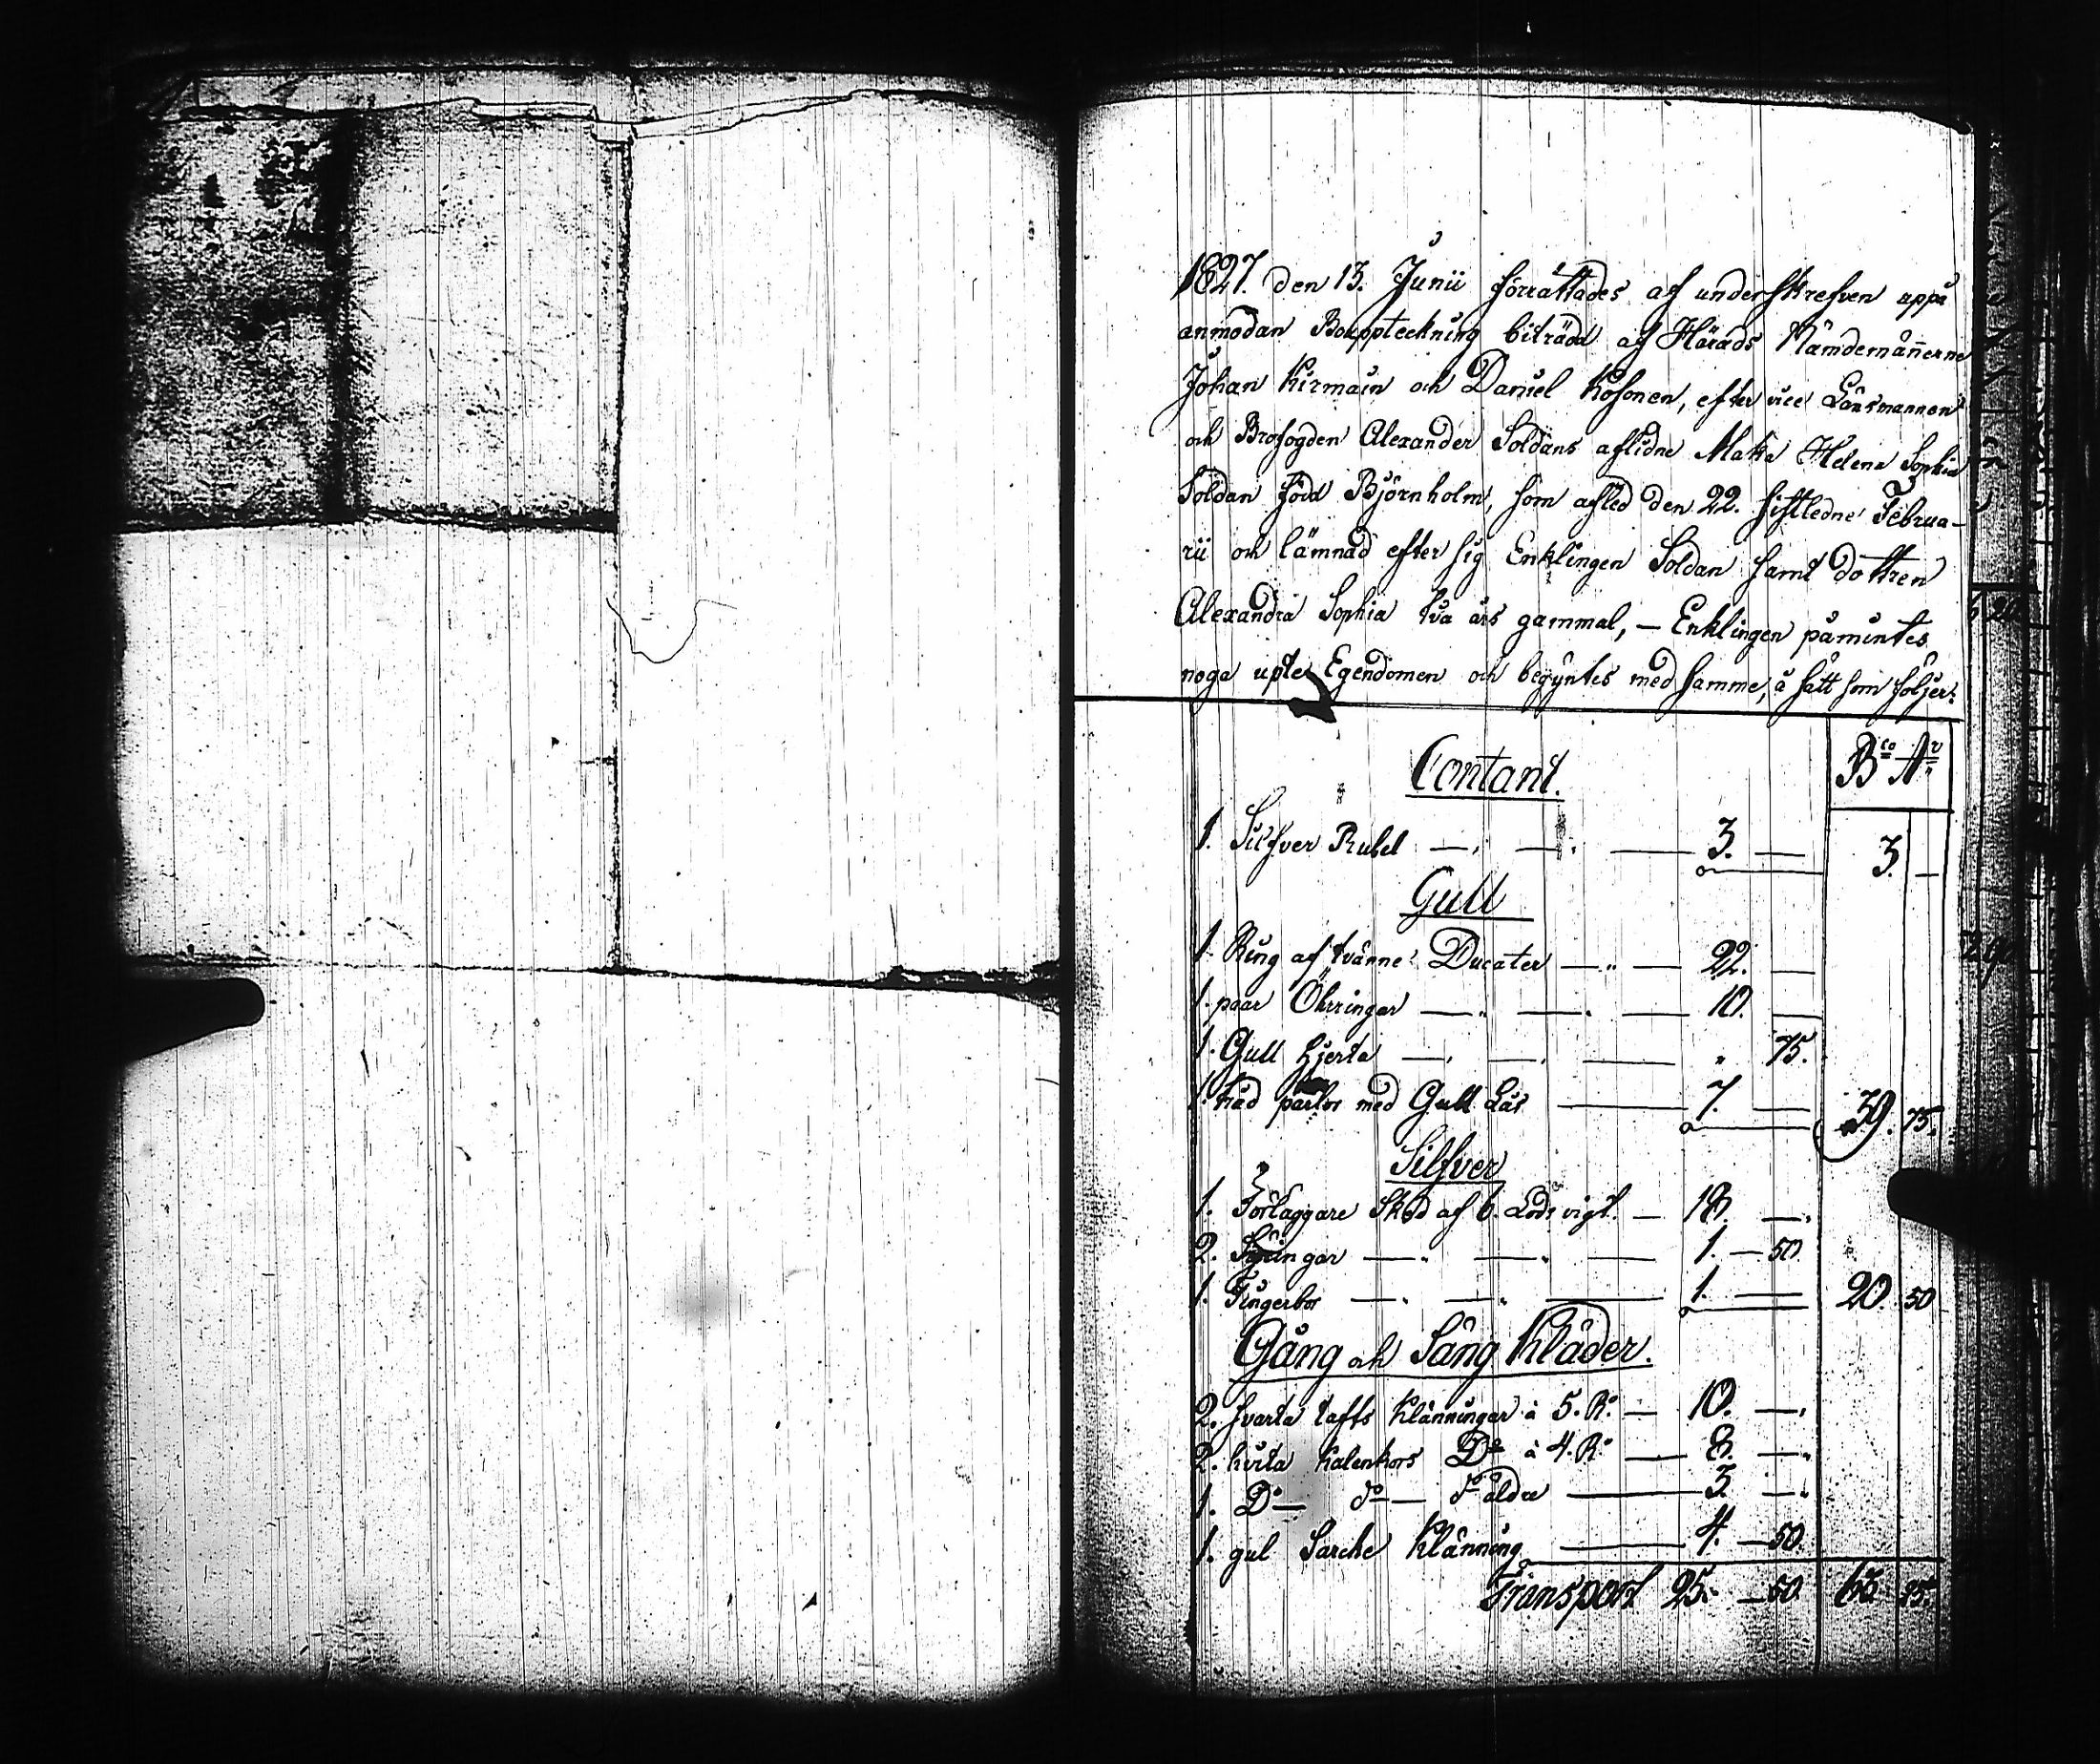 1827. den 13. Junii förrättades af underskrefven uppå
anmodan Bouppteckning biträdd af Härads Nämdemänerne
Johan Kirmain och Daniel Kosonen, efter vice Länsmannen
och Brofogden Alexander Soldans aflidne Maka Helena Sophia
Soldan född Björnholm, som afled den 22. sistledne Februa-
rii och lämnad efter sig Enklingen Soldan samt dottren
Alexandra Sophia två års gammal, — Enklingen påmintes
noga upte Egendomen och begyntes med samme, å sätt som följer:
Contant. Bco Ar
1. Silfver Rubel — 3. — 3. —
Gull
1. Ring af tvänne Ducater — 22. —
1. paar Öhrringar — 10. —
1. Gull hjerta — " 75.
1. rad pärlor med Gull Lås — 7. — 39. 75.
Silfver
1. Förläggare Sked af 6. Lods vigt. — 18. —
2. — 1. — 50
1. Fingerbor — 1. — 20. 50
Gång och Säng Kläder.
2. svarta tafts Klänningar à 5. R. — 10. —
2. hvita Kalenkors Do à 4. R. — 8. —
1. Do — do — do äldre — 3. —
1. gul Sarche Klänning — 4. — 50.
Transport 25. — 50 63 25.